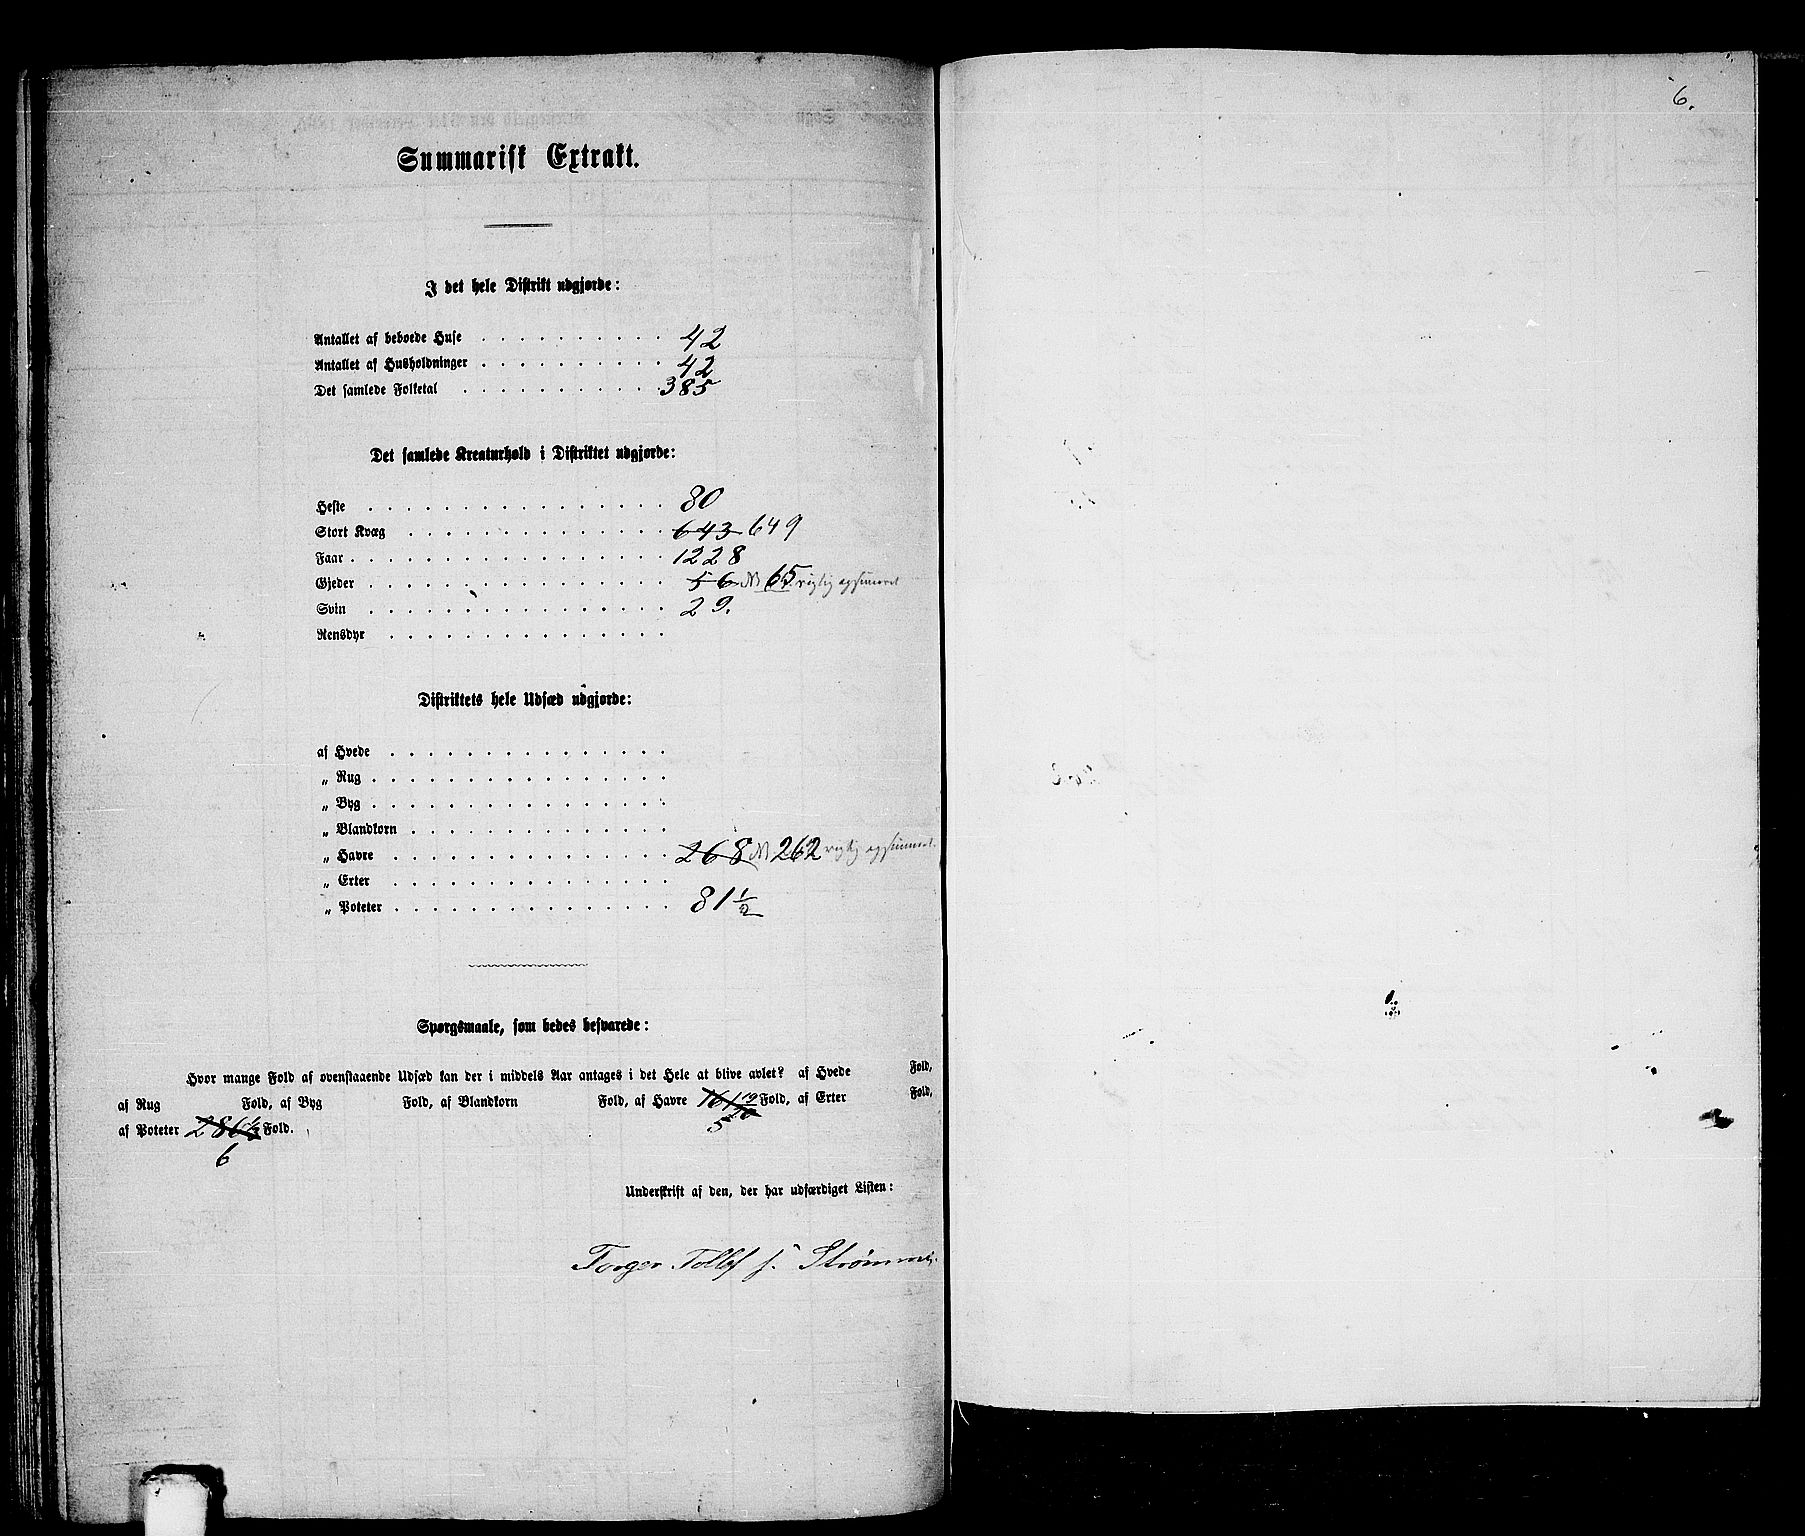 Summarisk Extrakt.
I det hele Distrikt udgjorde:
Antallet af beboede Huse . . . . . . . . . . 42
Antallet af Husholdninger . . . . . . . . . . 42
Det samlede Folketal . . . . . . . . . . . 385
Det samlede Kreaturhold i Distriktet udgjorde:
Heste . . . . . . . . . . . . . . . . 80
Stort Kvæg . . . . . . . . . . . . . . 643 649
Faar . . . . . . . . . . . . . . . . . 1228
Gjeder . . . . . . . . . . . . . . . . 56 65 rigtig opsumeret
Svin . . . . . . . . . . . . . . . . 29.
Rensdyr . . . . . . . . . . . . . . .
Distriktets hele Udsæd udgjorde:
af Hvede . . . . . . . . . . . . . . .
„ Rug . . . . . . . . . . . . . . . .
„ Byg . . . . . . . . . . . . . . . .
„ Blandkorn . . . . . . . . . . . . . .
„ Havre . . . . . . . . . . . . . . . 268 262 rigtig opsummeret.
„ Erter . . . . . . . . . . . . . . .
„ Poteter . . . . . . . . . . . . . . . 81 1/2
Spørgsmaale, som bedes besvarede:
Hvor mange Fold af ovenstaaende Udsæd kan der i middels Aar antages i det Hele at blive avlet? af Hvede Fold,
af Rug Fold, af Byg Fold, af Blandkorn Fold, af Havre 161 19/20 Fold, af Erter Fold,
5
af Poteter 286 1/3 Fold.
6
Underskrift af den, der har udfærdiget Listen:
Torger Tollef s. Strømme
6.